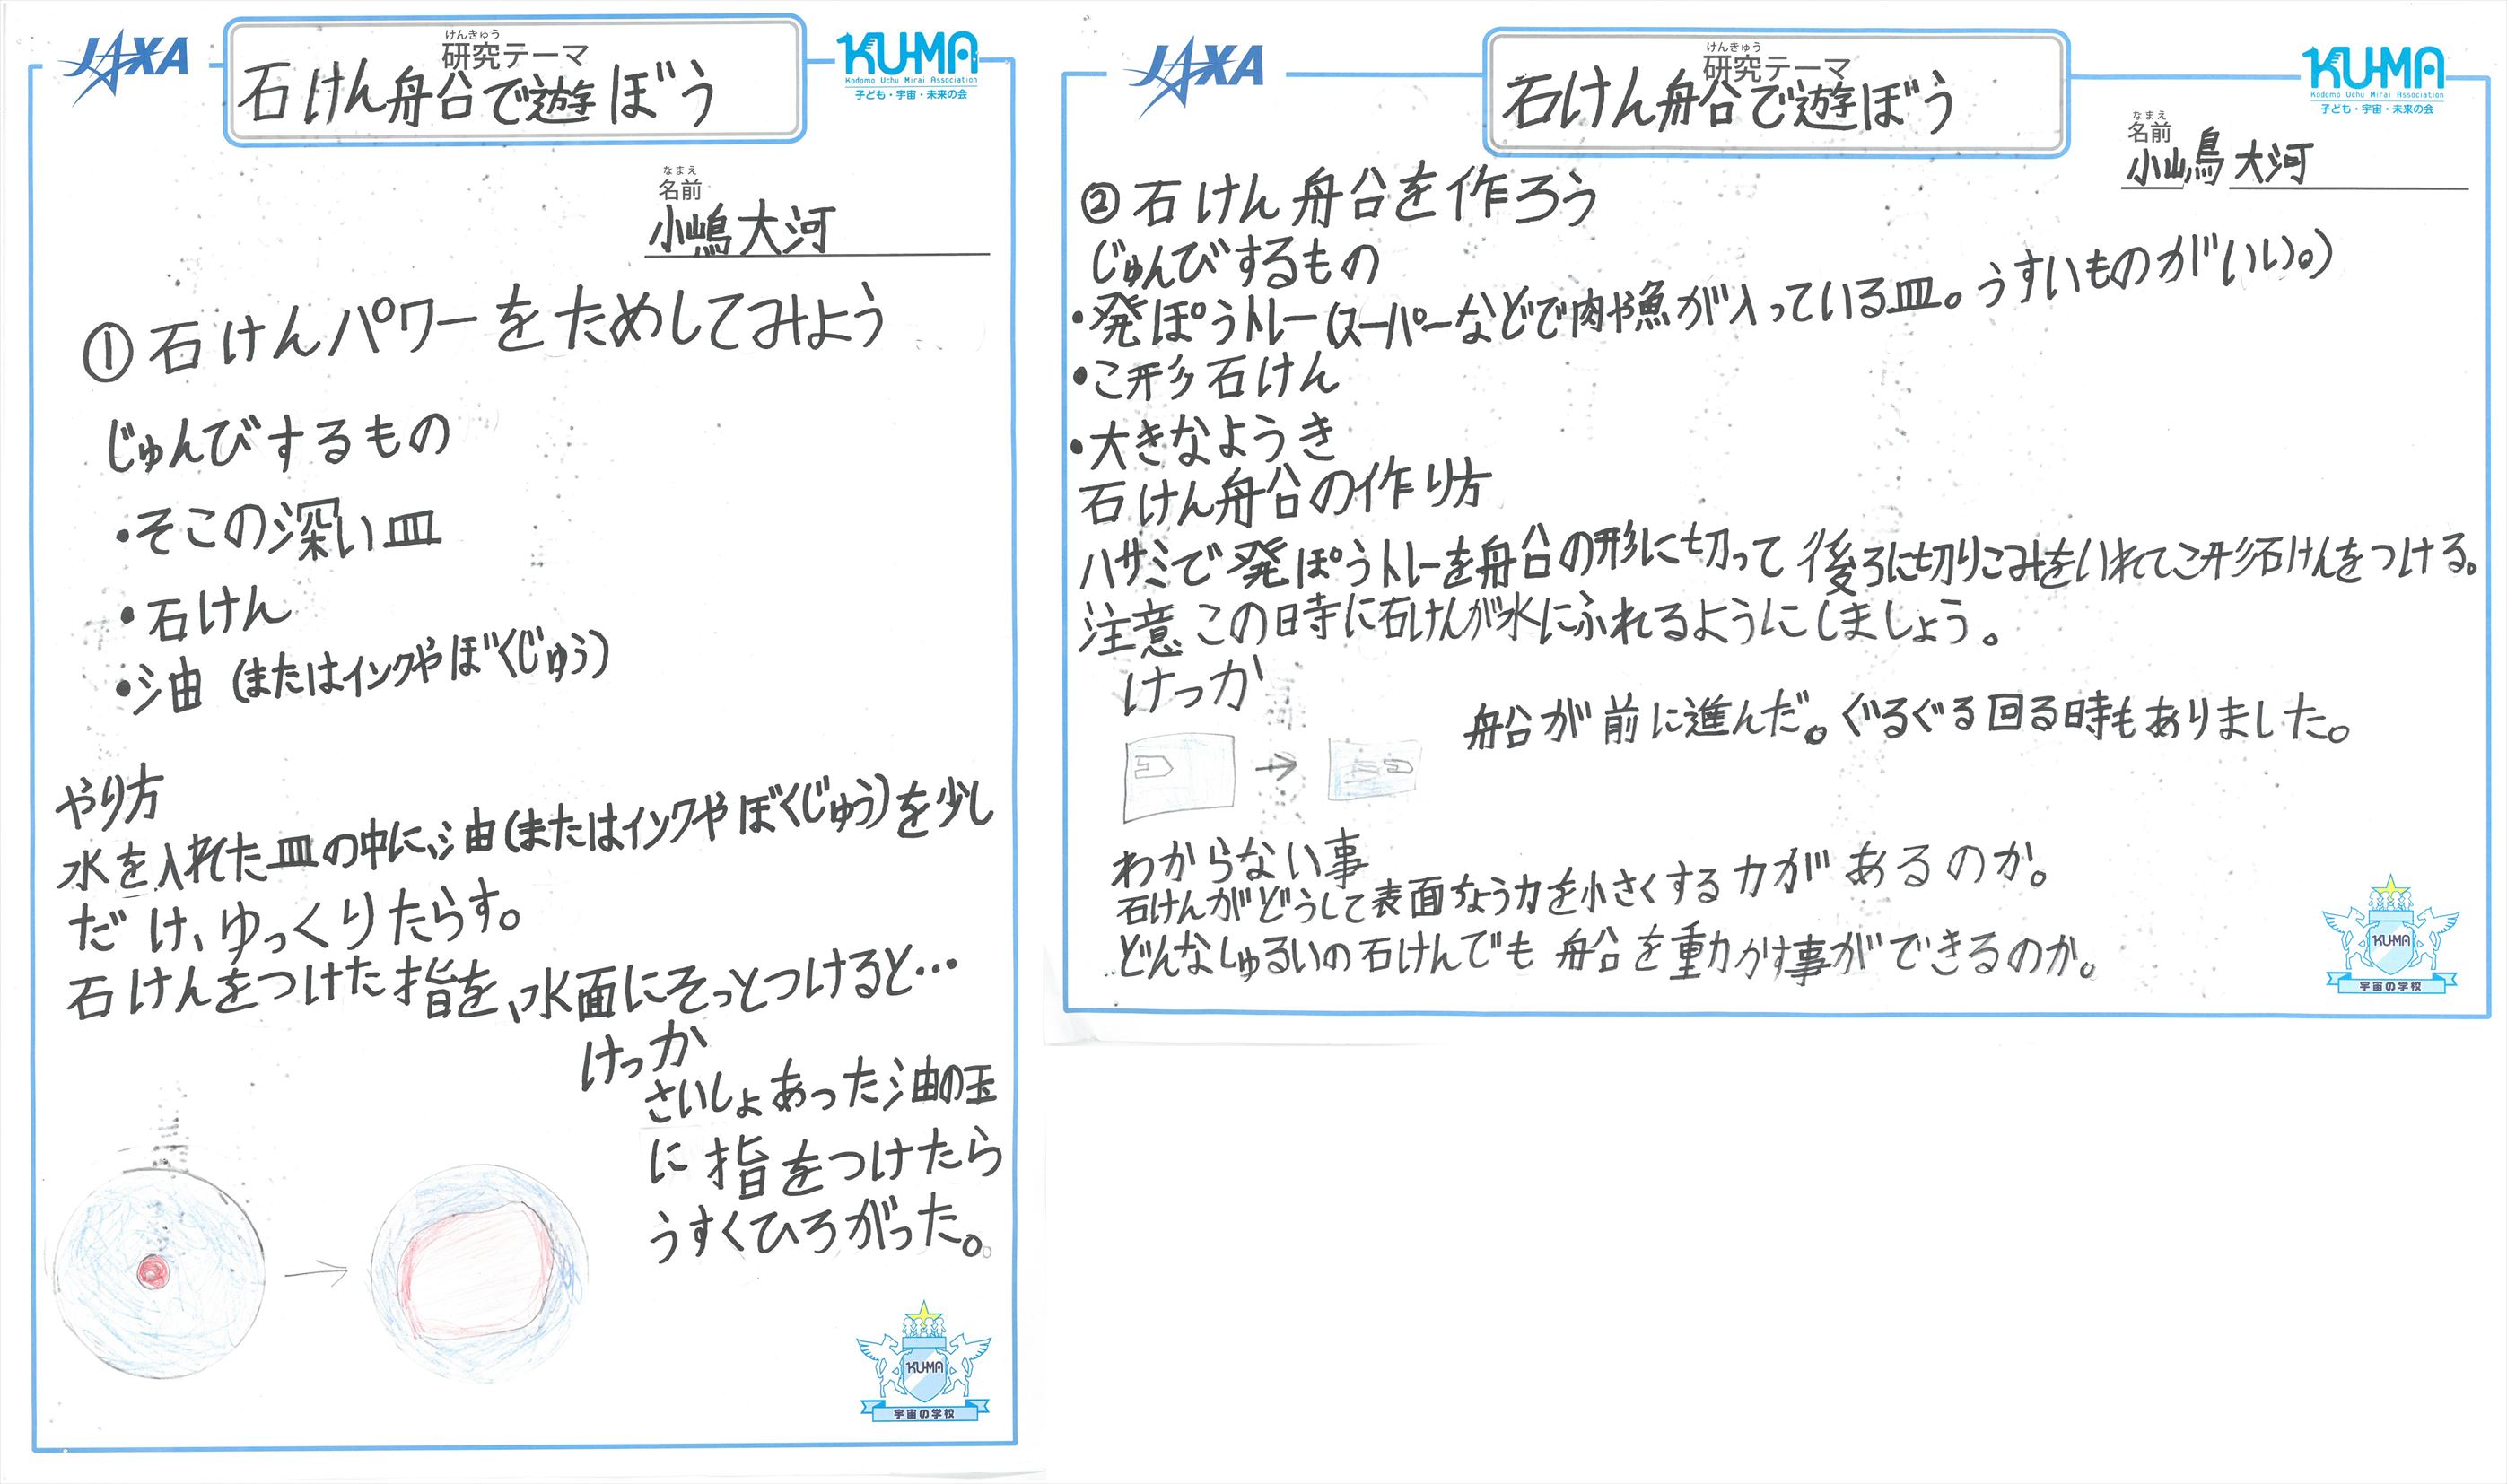 JAXA
けんきゅう
研究テーマ
石けん船で遊ぼう
KU-MA
Kodomo Uchu Mirai Association
子ども・宇宙・未来の会
なまえ
名前
小嶋大河
①石けんパワーをためしてみよう
じゅんびするもの
・そこの深い皿
・石けん
・油(またはインクやぼくじゅう)
やり方
水を入れた皿の中に油(またはインクやぼくじゅう)を少し
だけ、ゆっくりたらす。
石けんをつけた指を、水面にそっとつけると…
けっか
さいしょあった油の玉
に指をつけたら
うすくひろがった。
KU-MA
宇宙の学校
JAXA
けんきゅう
研究テーマ
石けん船で遊ぼう
KU-MA
Kodomo Uchu Mirai Association
子ども・宇宙・未来の会
なまえ
名前
小嶋大河
②石けん船を作ろう
じゅんびするもの
・発ぽうトレー(スーパーなどで肉や魚が入っている皿。うすいものがいい。)
・こ形石けん
・大きなようき
石けん船の作り方
ハサミで発ぽうトレーを船の形に切って後ろに切りこみをいれてこ形石けんをつける。
注意この時に石けんが水にふれるようにしましょう。
けっか
船が前に進んだ。ぐるぐる回る時もありました。
わからない事
石けんがどうして表面ちょう力を小さくする力があるのか。
どんなしゅるいの石けんでも船を動かす事ができるのか。
KU-MA
宇宙の学校